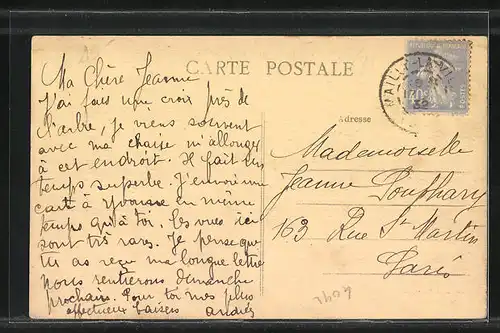 CARTE POSTALE
Adresse
Ma Chère Jeanne
J'ai fais une croix près de
l'arbre, je viens souvent
avec ma chaise m'allonger
à cet endroit. Il fait un
temps superbe. J'envoie une
carte à Yvonne en même
temps qu'à toi. Les vues ici
sont très rares. Je pense que
tu as reçu ma longue lettre
nous rentrerons dimanche
prochain. Pour toi mes plus
affectueux baisers
Mademoiselle
Jeanne
163 Rue St Martin
Paris
MAILLY-LA-VIL
40c
POSTES